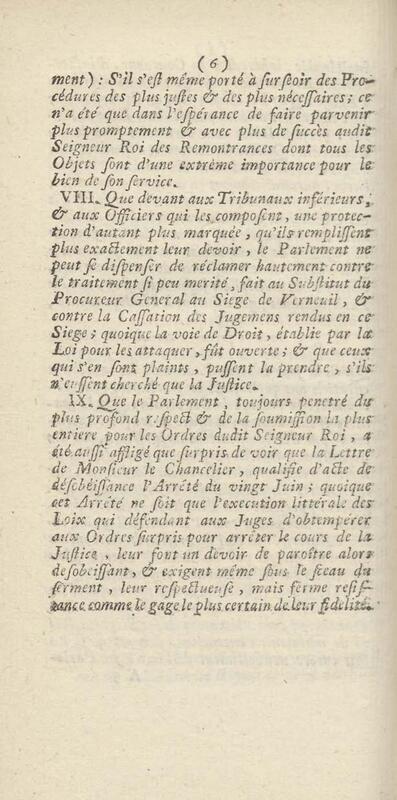 ( 6 )
ment) : S'il s'eſt même porté à ſurſeoir des Pro-
cédures des plus juſtes & des plus néceſſaires; ce
n'a été que dans l'eſpérance de faire parvenir
plus promptement & avec plus de ſuccès audit
Seigneur Roi des Remontrances dont tous les
Objets ſont d'une extrème importance pour le
bien de ſon ſervice.
VIII. Que devant aux Tribunaux inférieurs,
& aux Officiers qui les compoſent, une protec-
tion d'autant plus marquée, qu'ils rempliſſent
plus exactement leur devoir, le Parlement ne
peut ſe diſpenſer de réclamer hautement contre
le traitement ſi peu merité, fait au Subſtitut du
Procureur General au Siege de Verneuil, &
contre la Caſſation des Jugemens rendus en ce
Siege; quoique la voie de Droit, établie par la
Loi pour les attaquer, fût ouverte; & que ceux
qui s'en ſont plaints, puſſent la prendre, s'ils
n'euſſent cherché que la Juſtice.
IX. Que le Parlement, toujours penetré du
plus profond reſpect & de la ſoumiſſion la plus
entiere pour les Ordres dudit Seigneur Roi, a
été auſſi affligé que ſurpris de voir que la Lettre
de Monſieur le Chancelier, qualifie d'acte de
déſobéiſſance l'Arrêté du vingt Juin; quoique
cet Arrêté ne ſoit que l'execution littérale des
Loix qui défendant aux Juges d'obtempérer
aux Ordres ſurpris pour arrêter le cours de la
Juſtice, leur font un devoir de paroître alors
deſobeiſſant, & exigent même ſous le ſceau du
ſerment, leur reſpectueuſe, mais ferme reſiſ-
tance comme le gage le plus certain de leur fidelité.